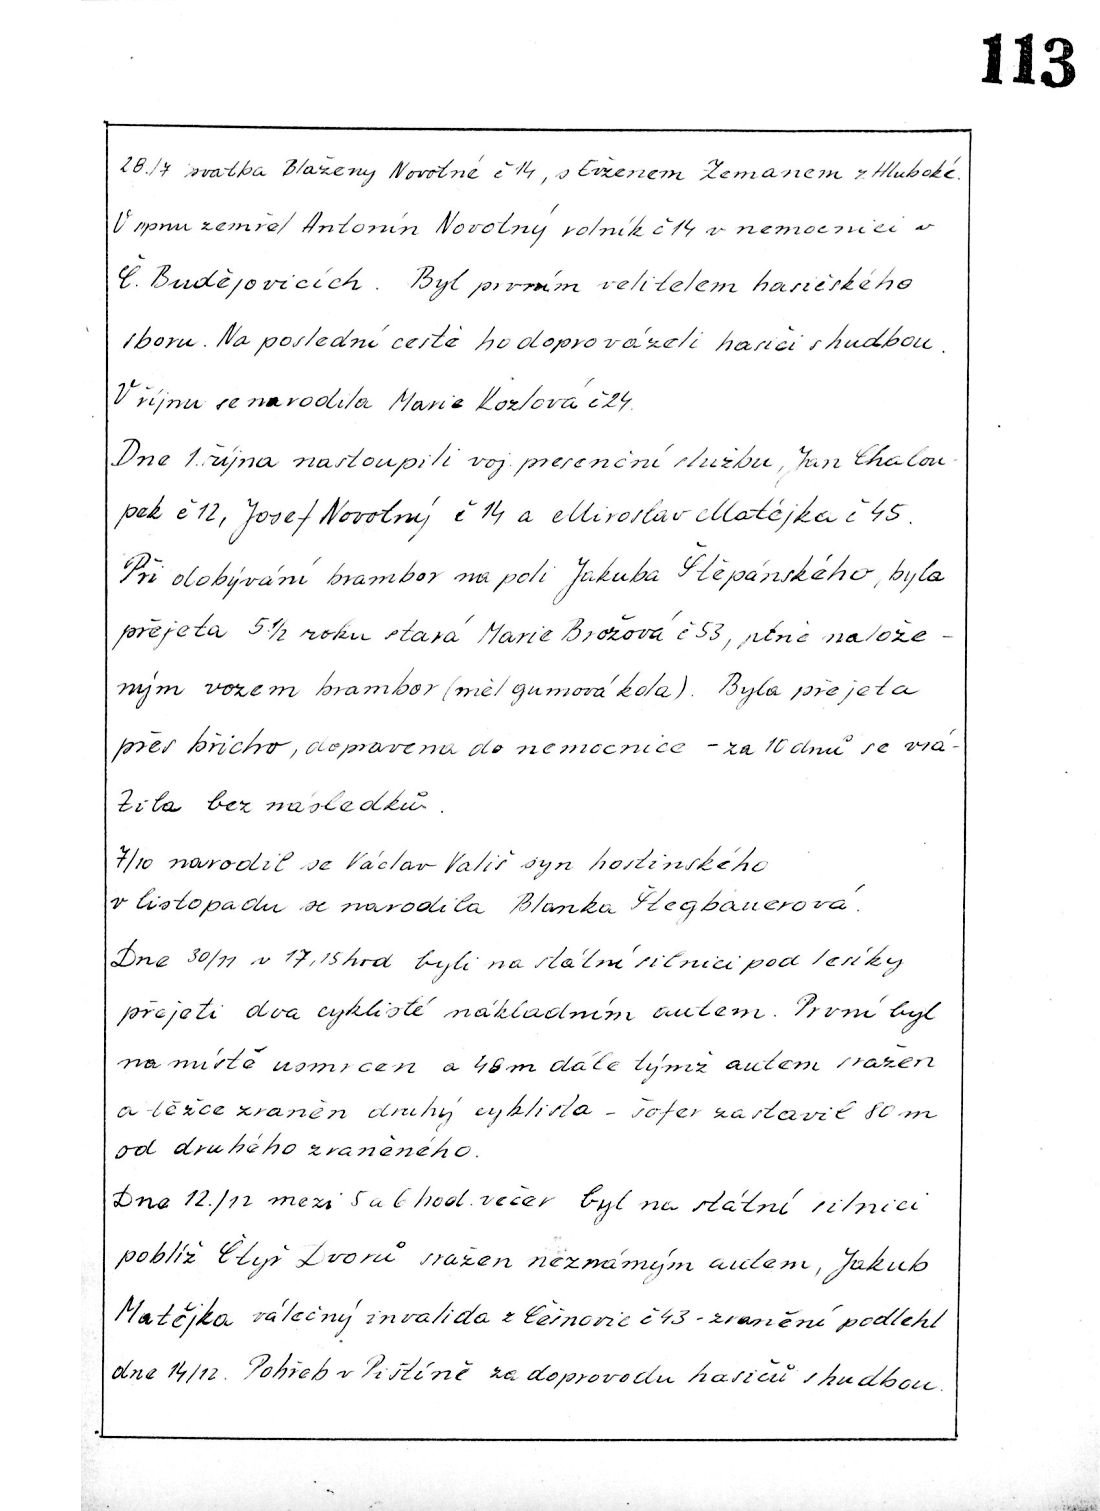 113
28./7 svatba Blaženy Novotné č 14, s Evženem Zemanem z Hluboké.
V srpnu zemřel Antonín Novotný rolník č 14 v nemocnici v
Č. Budějovicích. Byl prvním velitelem hasičského
sboru. Na poslední cestě ho doprovázeli hasiči s hudbou.
V říjnu se narodila Marie Kozlová č 24.
Dne 1. října nastoupili voj. presenční službu, Jan Chalou-
pek č 12, Josef Novotný č 14 a Miroslav Matějka č 45.
Při dobývání brambor na poli Jakuba Štěpánského, byla
přejeta 5 1/2 roku stará Marie Brožová č 53, plně nalože-
ným vozem brambor (měl gumová kola). Byla přejeta
přes břicho, dopravena do nemocnice - za 10 dnů se vrá-
tila bez následků.
7/10 narodil se Václav Vališ syn hostinského
v listopadu se narodila Blanka Štegbauerová.
Dne 30/11 v 17,15 hod byli na státní silnici pod lesíky
přejeti dva cyklisté nákladním autem. První byl
na místě usmrcen a 46 m dále týmž autem sražen
a těžce zraněn druhý cyklista - šofer zastavil 80 m
od druhého zraněného.
Dne 12./12 mezi 5 a 6 hod. večer byl na státní silnici
poblíž Čtyř Dvorů sražen neznámým autem, Jakub
Matějka válečný invalida z Češnovic č 43 - zranění podlehl
dne 14/12. Pohřeb v Pištíně za doprovodu hasičů s hudbou.